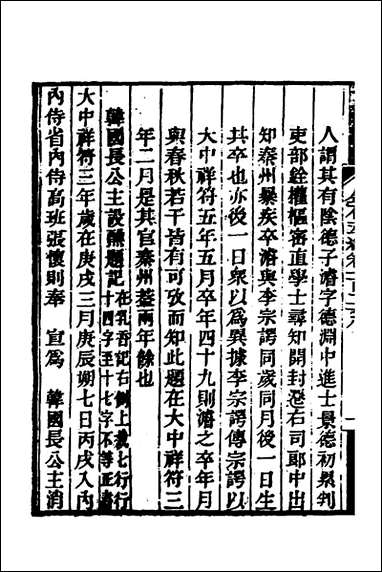 人謂其有陰德子濬字德淵中進士景德初累判
吏部銓擢樞密直學士尋知開封遷右司郎中出
知秦州暴疾卒濬與李宗諤同歲同月後一日生
其卒也亦後一日衆以為異據李宗諤傳宗諤以
大中祥符五年五月卒年四十九則濬之卒年月
與春秋若干皆有可攷而知此題在大中祥符三
年二月是其官秦州蓋兩年餘也
韓國長公主設醮題記在乳香記右側上截七行行十四字至十七字不等正書
大中祥符三年歲在庚戌三月庚辰朔七日丙戌入內
內侍省內侍高班張懷則奉 宣為 韓國長公主消